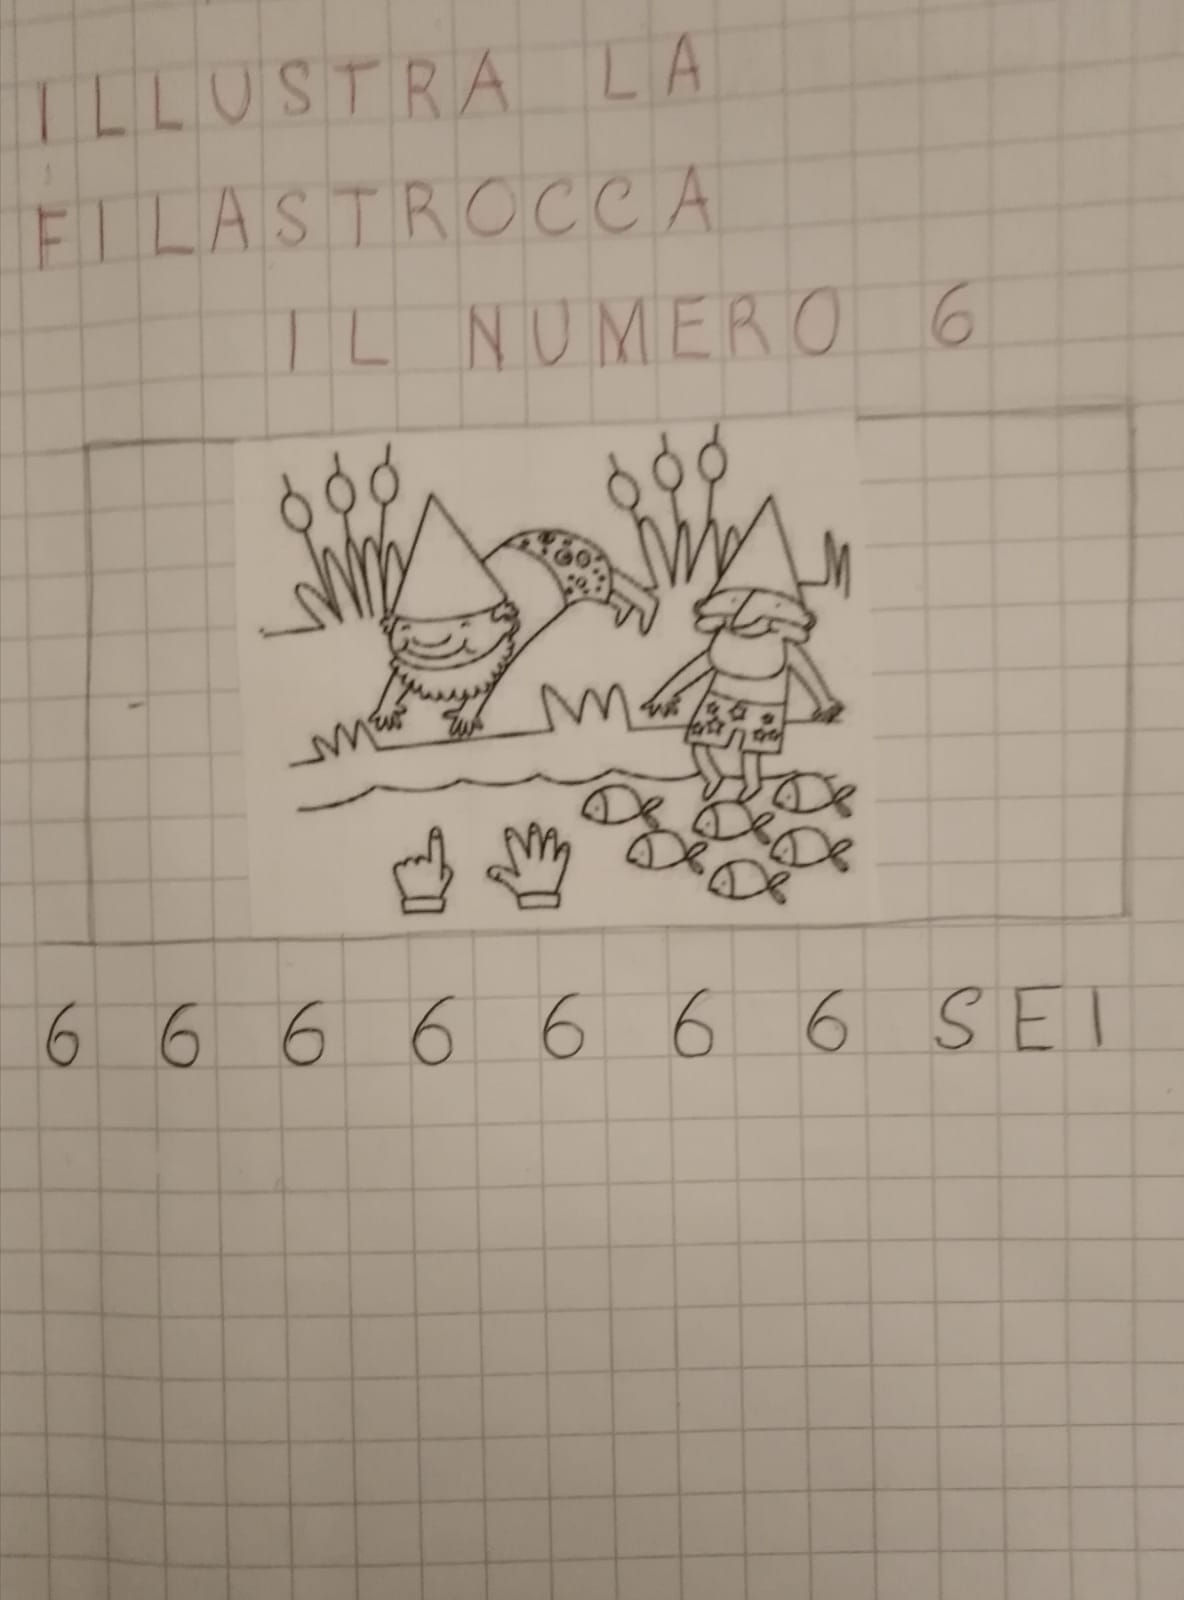 ILLUSTRA LA
FILASTROCCA
IL NUMERO 6
6 6 6 6 6 6 6 SEI